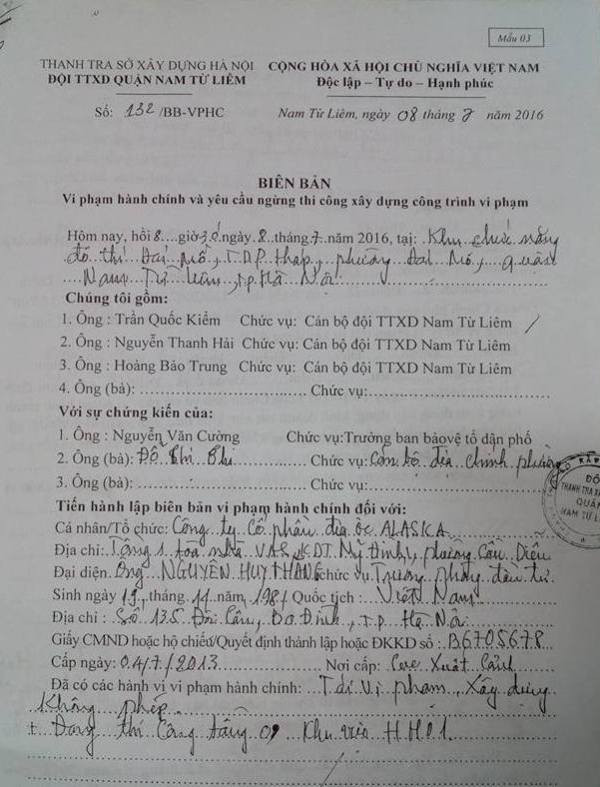 Mẫu 03
THANH TRA SỞ XÂY DỰNG HÀ NỘI
ĐỘI TTXD QUẬN NAM TỪ LIÊM
CỘNG HÒA XÃ HỘI CHỦ NGHĨA VIỆT NAM
Độc lập – Tự do – Hạnh phúc
Số: 132/BB-VPHC
Nam Từ Liêm, ngày 08 tháng 7 năm 2016
BIÊN BẢN
Vi phạm hành chính và yêu cầu ngừng thi công xây dựng công trình vi phạm
Hôm nay, hồi 8....giờ30.ngày.8..tháng.7.năm 2016, tại: Khu chức năng
đô thị Đại Mỗ, T.D.P tháp, phường Đại Mỗ, quận
Nam Từ Liêm, T.p. Hà Nội
Chúng tôi gồm:
1. Ông : Trần Quốc Kiểm Chức vụ: Cán bộ đội TTXD Nam Từ Liêm
2. Ông : Nguyễn Thanh Hải Chức vụ: Cán bộ đội TTXD Nam Từ Liêm
3. Ông : Hoàng Bảo Trung Chức vụ: Cán bộ đội TTXD Nam Từ Liêm
4. Ông (bà): ................................ Chức vụ:................................
Với sự chứng kiến của:
1. Ông : Nguyễn Văn Cường Chức vụ:Trưởng ban bảovệ tổ dân phố
2. Ông (bà): Đỗ Thị Chức vụ: Cán bộ địa chính phường
3. Ông (bà): ................................ Chức vụ:................................
Tiến hành lập biên bản vi phạm hành chính đối với:
Cá nhân/Tổ chức: Công ty Cổ phần địa ốc ALASKA
Địa chỉ: Tầng 1 tòa nhà KDT Mỹ Đình, phường Cầu Diễn
Đại diện Ông NGUYỄN HUY THĂNG chức vụ Trưởng phòng đầu tư
Sinh ngày 19..tháng.11..năm.1981 Quốc tịch : Việt Nam
Địa chỉ : Số 135 Đội Cấn, Ba Đình, T.p. Hà Nội
Giấy CMND hoặc hộ chiếu/Quyết định thành lập hoặc ĐKKD số : B6705678
Cấp ngày: 04/7/2013 Nơi cấp: Cục Xuất Cảnh
Đã có các hành vi vi phạm hành chính: Tái Vi phạm Xây dựng
Không phép
+ Đang thi Công tầng 09 Khu HH01.
ĐỘI
THANH TRA
QUẬN
NAM TỪ